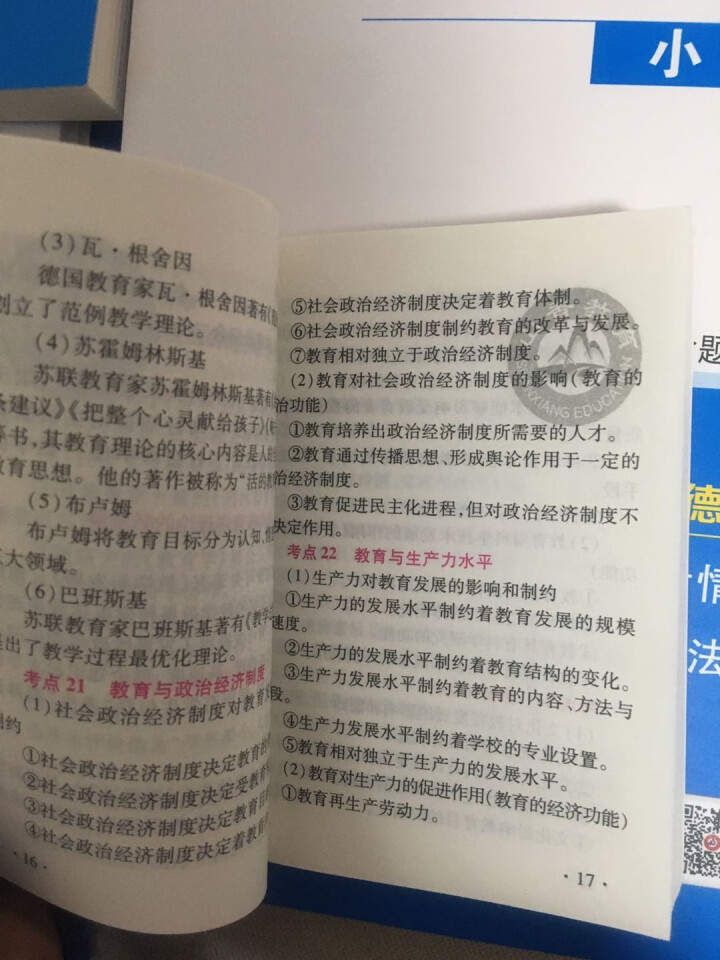 小
(3)瓦·根舍因
德国教育家瓦·根舍因著有《
创立了范例教学理论。
(4)苏霍姆林斯基
苏联教育家苏霍姆林斯基著有
条建议》《把整个心灵献给孩子》《
等书,其教育理论的核心内容是人的
教育思想。他的著作被称为“活的教
(5)布卢姆
布卢姆将教育目标分为认知、
三大领域。
(6)巴班斯基
苏联教育家巴班斯基著有《教学
提出了教学过程最优化理论。
考点21 教育与政治经济制度
(1)社会政治经济制度对教育
制约
①社会政治经济制度决定教育的
②社会政治经济制度决定受教育
③社会政治经济制度决定教育目
④社会政治经济制度决定着教育
·16·
⑤社会政治经济制度决定着教育体制。
⑥社会政治经济制度制约教育的改革与发展。
⑦教育相对独立于政治经济制度。
(2)教育对社会政治经济制度的影响(教育的
治功能)
①教育培养出政治经济制度所需要的人才。
②教育通过传播思想、形成舆论作用于一定的
治经济制度。
③教育促进民主化进程,但对政治经济制度不
决定作用。
考点22 教育与生产力水平
(1)生产力对教育发展的影响和制约
①生产力的发展水平制约着教育发展的规模
速度。
②生产力的发展水平制约着教育结构的变化。
③生产力发展水平制约着教育的内容、方法与
段。
④生产力发展水平制约着学校的专业设置。
⑤教育相对独立于生产力的发展水平。
(2)教育对生产力的促进作用(教育的经济功能)
①教育再生产劳动力。
·17·
题
德
情
法